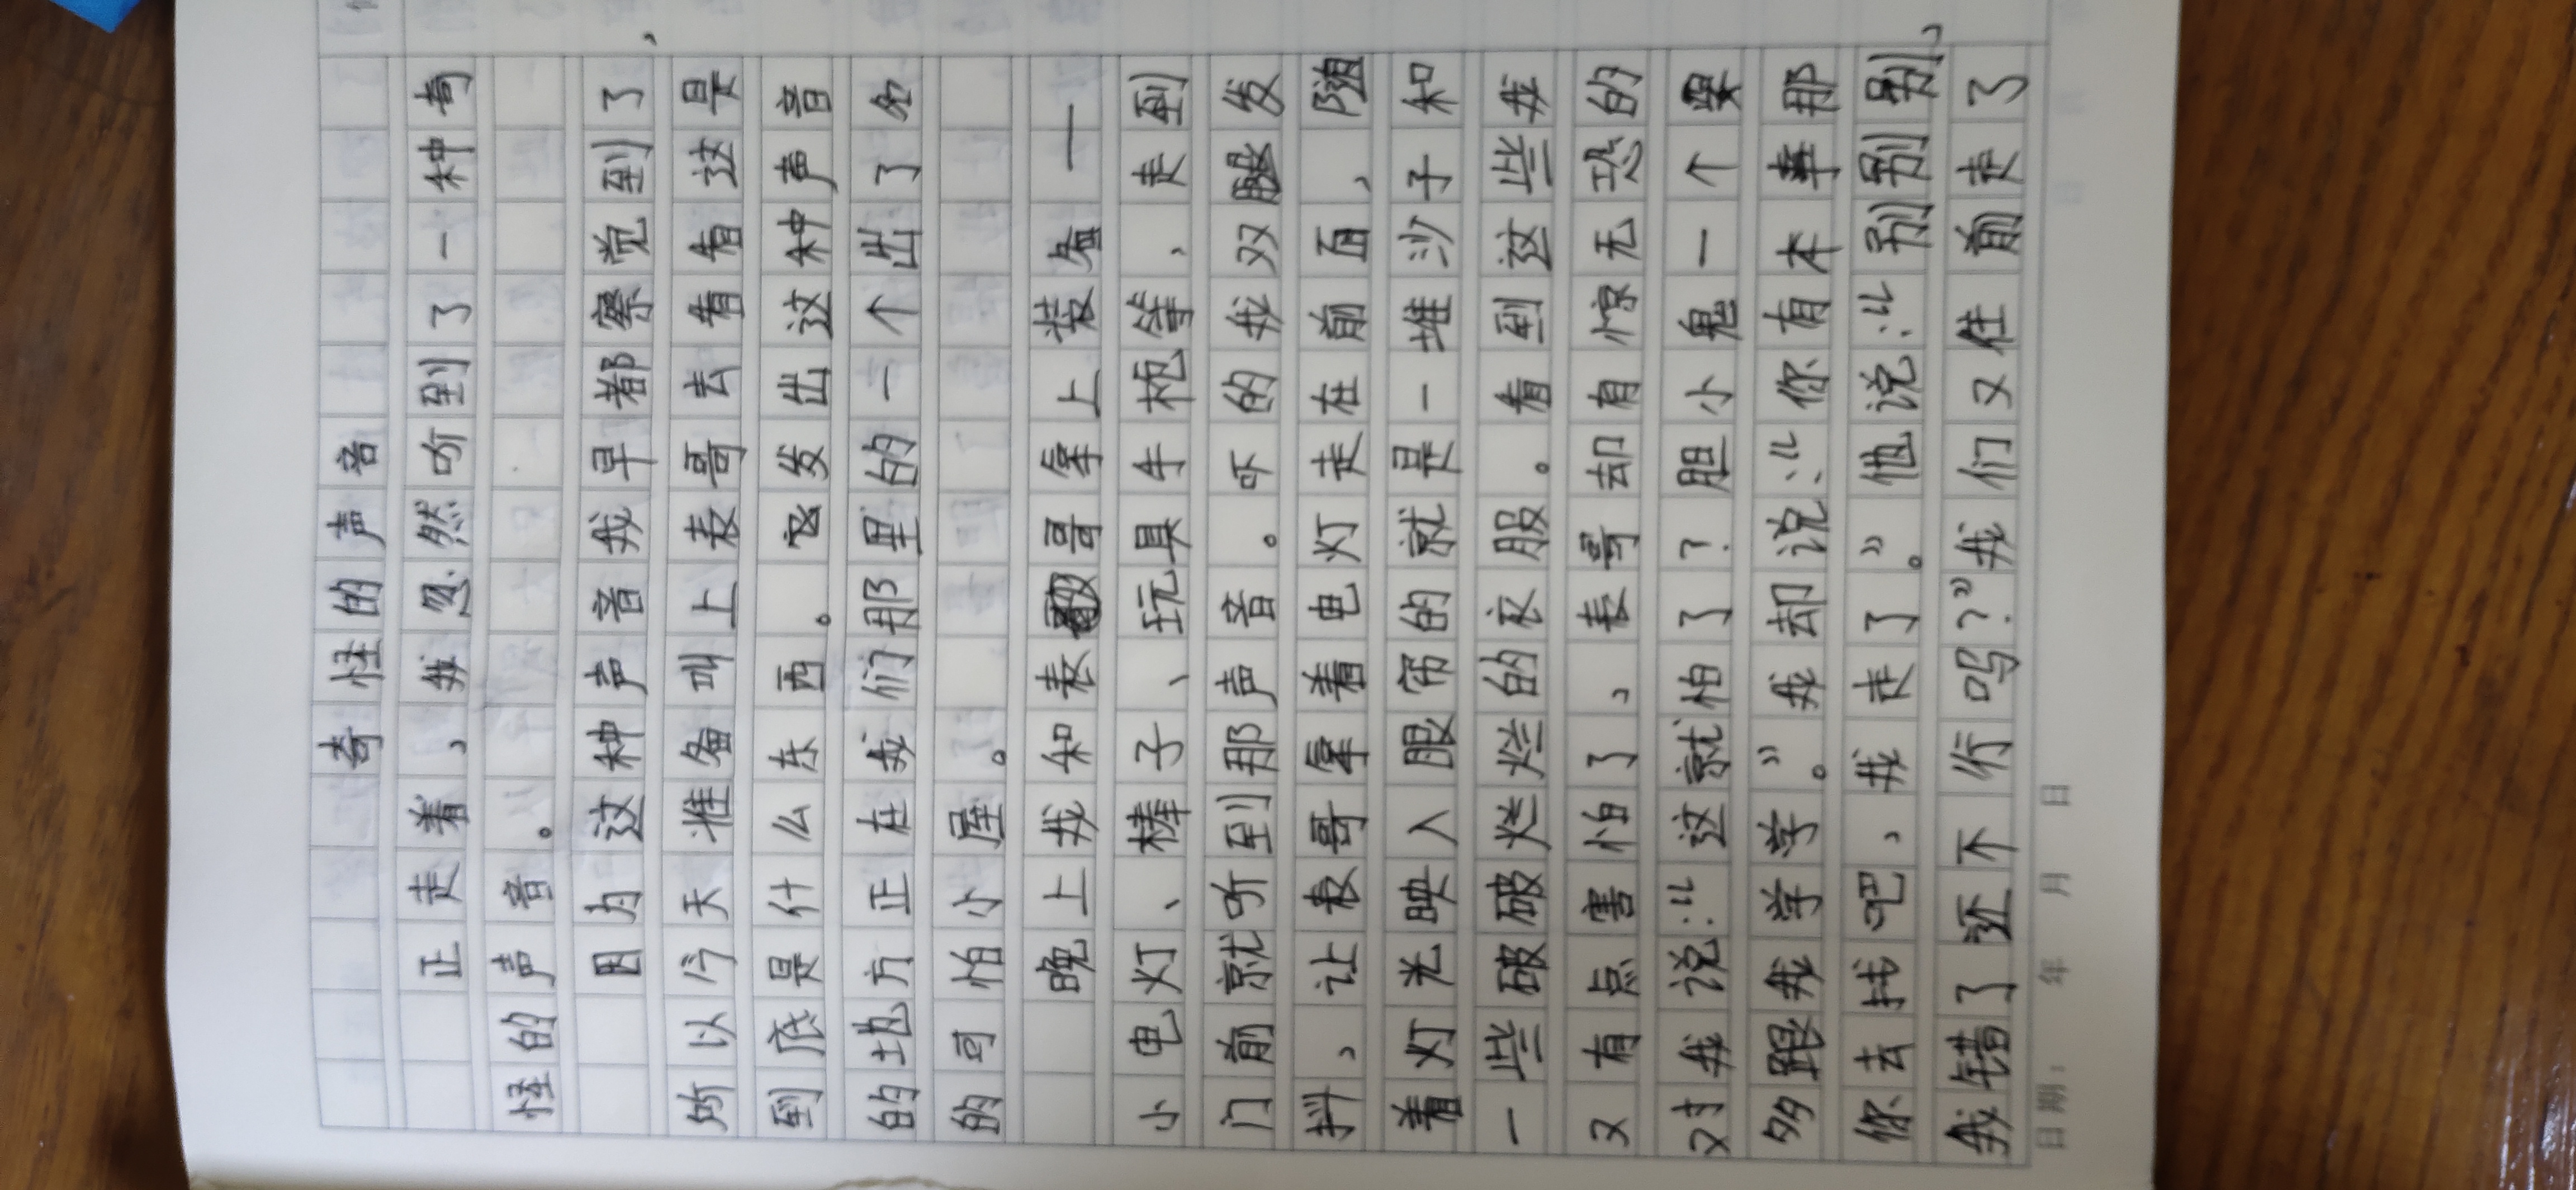 奇怪的声音
正走着，我忽然听到了一种奇
怪的声音。
因为这种声音我早都察觉到了，
所以今天准备叫上表哥去看看这是
到底是什么东西。它发出这种声音
的地方正在我们那里的一个出了名
的可怕小屋。
晚上我和表哥拿上装备——
小电灯、棒子、玩具手枪等，走到
门前就听到那声音。吓的我双腿发
抖，让表哥拿着电灯走在前面，随
着灯光映入眼帘的就是一堆沙子和
一些破破烂烂的衣服。看到这些我
又有点害怕了，表哥却有惊无恐的
对我说：“这就怕了？胆小鬼一个
多跟我学学”。我却说：“你有本事那
你去找吧，我走了”。他说：“别别别别，
我错了还不行吗？”我们又往前走了
日期： 年 月 日